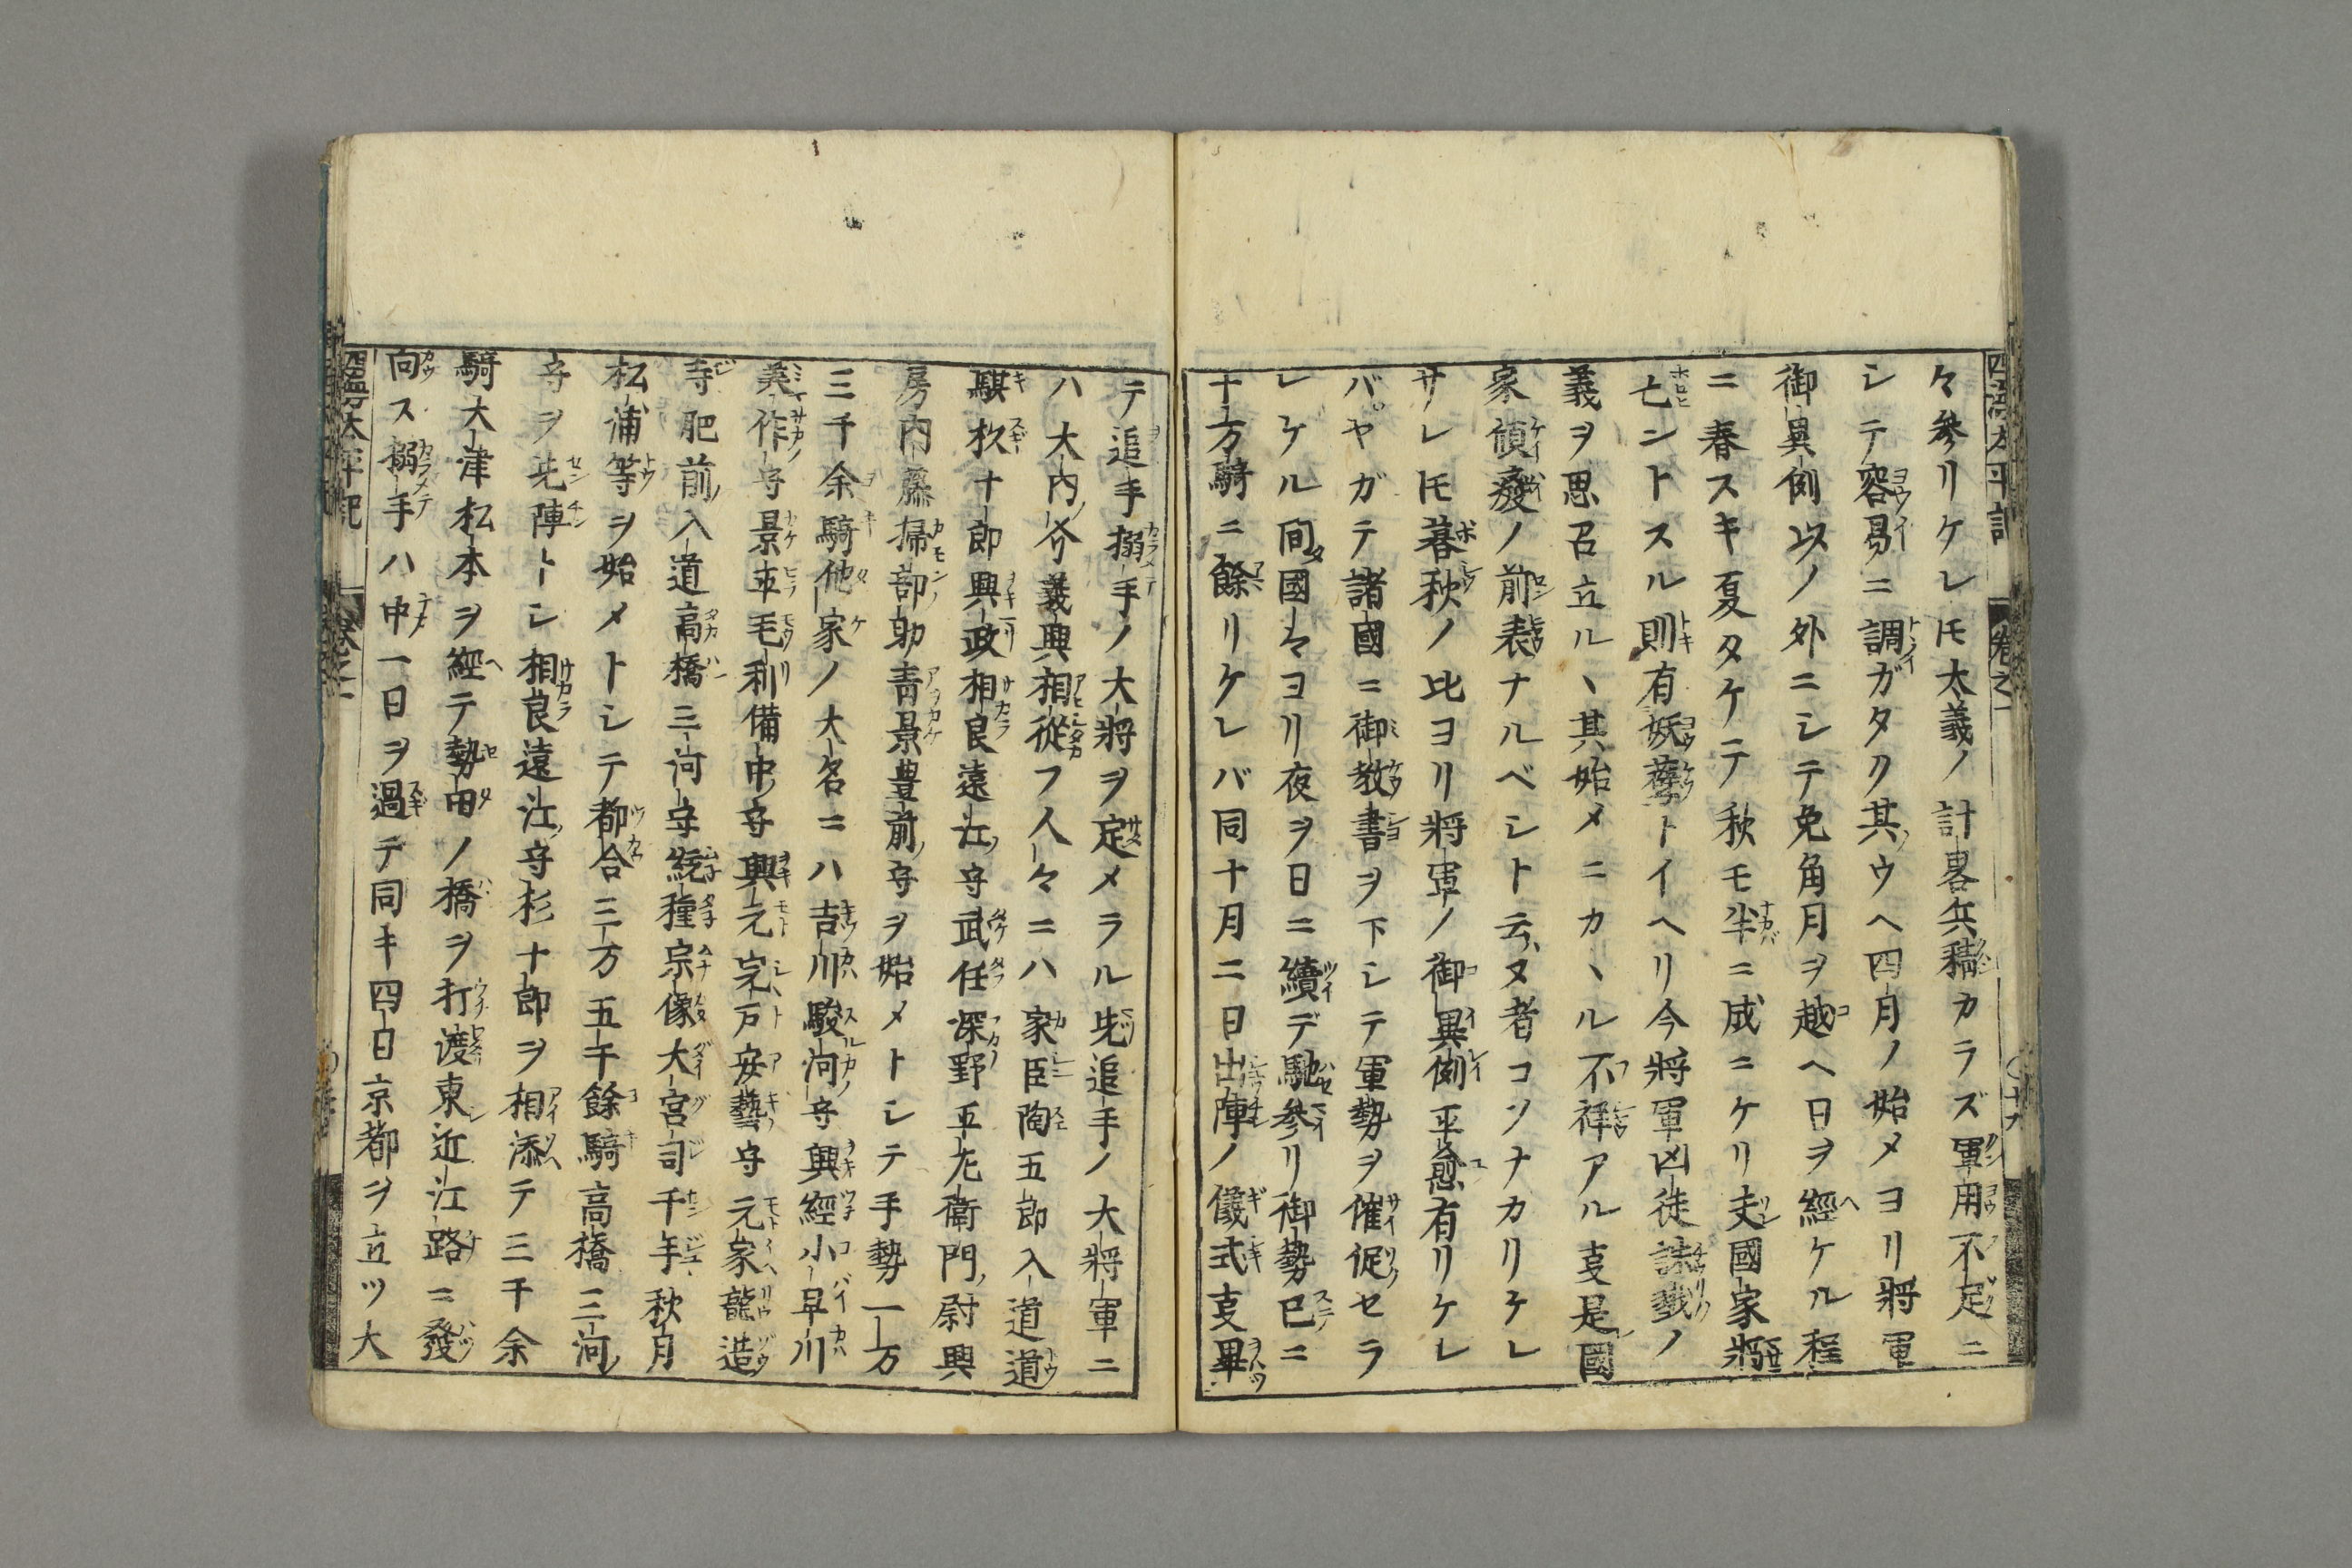 四海太平記
卷之一
々參リケレ𪜈太義ノ計畧兵穡カラズ軍用不足ニ
シテ容易ニ調ガタク其ウヘ四月ノ始メヨリ將軍
御異例以ノ外ニシテ免角月ヲ越ヘ日ヲ經ケル程
ニ春スキ夏タケテ秋モ半ニ成ニケリ夫國家將
亡ントスル則有妖孽トイヘリ今將軍凶徒誅戮ノ
義ヲ思召立ルヽ其始メニカヽル不祥アル叓是國
家傾癈ノ前表ナルベシト云ヌ者コソナカリケレ
サレ𪜈暮秋ノ比ヨリ將軍ノ御異例平愈有リケレ
バヤガテ諸國ニ御教書ヲ下シテ軍勢ヲ催促セラ
レケル間國々ヨリ夜ヲ日ニ續デ馳參リ御勢已ニ
十万騎ニ餘リケレバ同十月二日出陣ノ儀式叓畢
テ追手搦手ノ大將ヲ定メラル先追手ノ大將軍ニ
ハ大内介義興相從フ人々ニハ家臣陶五郎入道道
騏杦十郎興政相良遠江守武任深野平左衛門尉興
房内藤掃部助青景豊前守ヲ始メトシテ手勢一万
三千余騎他家ノ大名ニハ吉川駿河守興經小早川
美作守景平毛利備中守興元宍戸安藝守元家龍造
寺肥前入道高橋三河守統種宗像大宮司千年秋月
松浦等ヲ始メトシテ都合三万五千餘騎高橋三河
守ヲ先陣トシ相良遠江守杉十郎ヲ相添テ三千余
騎大津松本ヲ經テ勢田ノ橋ヲ打渡東近江路ニ發
向ス搦手ハ中一日ヲ過テ同キ四日京都ヲ立ツ大
太平記